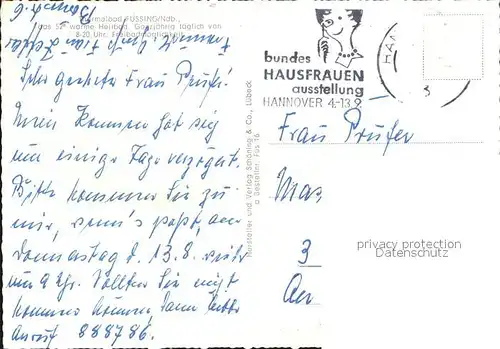 Thermalbad FÜSSING/Ndb.,
das 52° warme Heilbad. Ganzjährig täglich von
8-20 Uhr. Freibadmöglichkeit
Sehr geehrte Frau Prüfer!
Mein Kommen hat sich
um einige Tage verzögert.
Bitte kommen Sie zu
mir, wenn's paßt, am
Donnerstag d. 13.8.
um 9 Uhr. Sollten Sie nicht
kommen können, dann bitte
Anruf 888786.
Hersteller und Verlag Schöning & Co., Lübeck
Bestellnr. Füs 16
bundes
HAUSFRAUEN
ausstellung
HANNOVER 4.-13.9
HAN
3
Frau Prüfer
3
privacy protection
Datenschutz